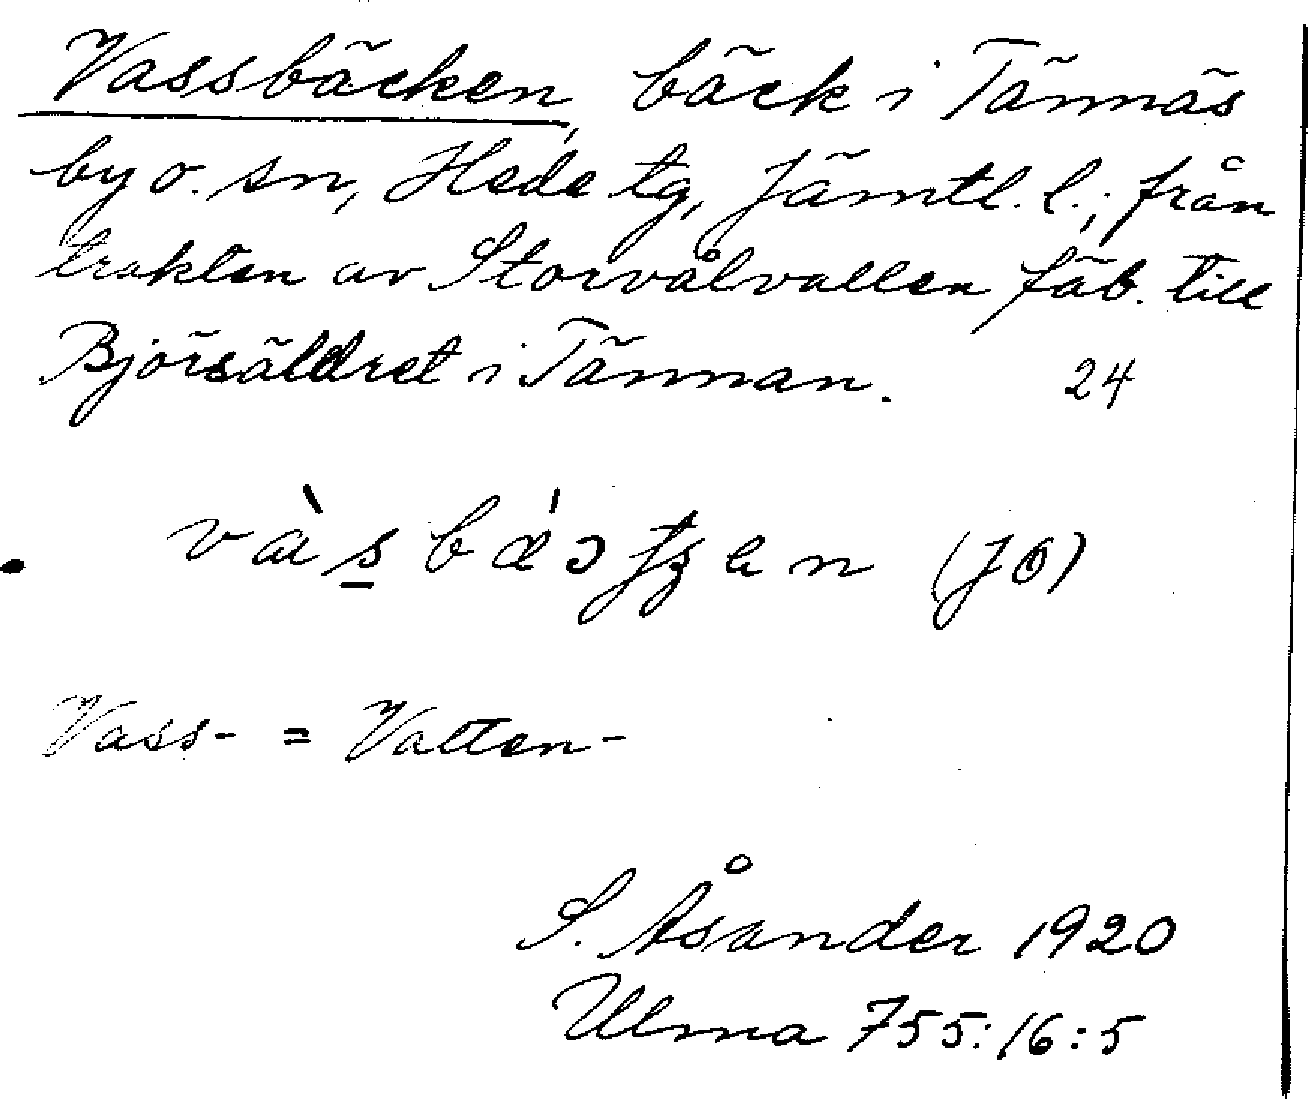 Vassbäcken, bäck i Tännäs
by o. sn, Hede tg, Jämtl. l.; från
trakten av Storvålvallen fäb. till
Björsäldret i Tännan. 24
(JÖ)
Vass- = Vatten-
S. Åsander 1920
Ulma 755:16:5